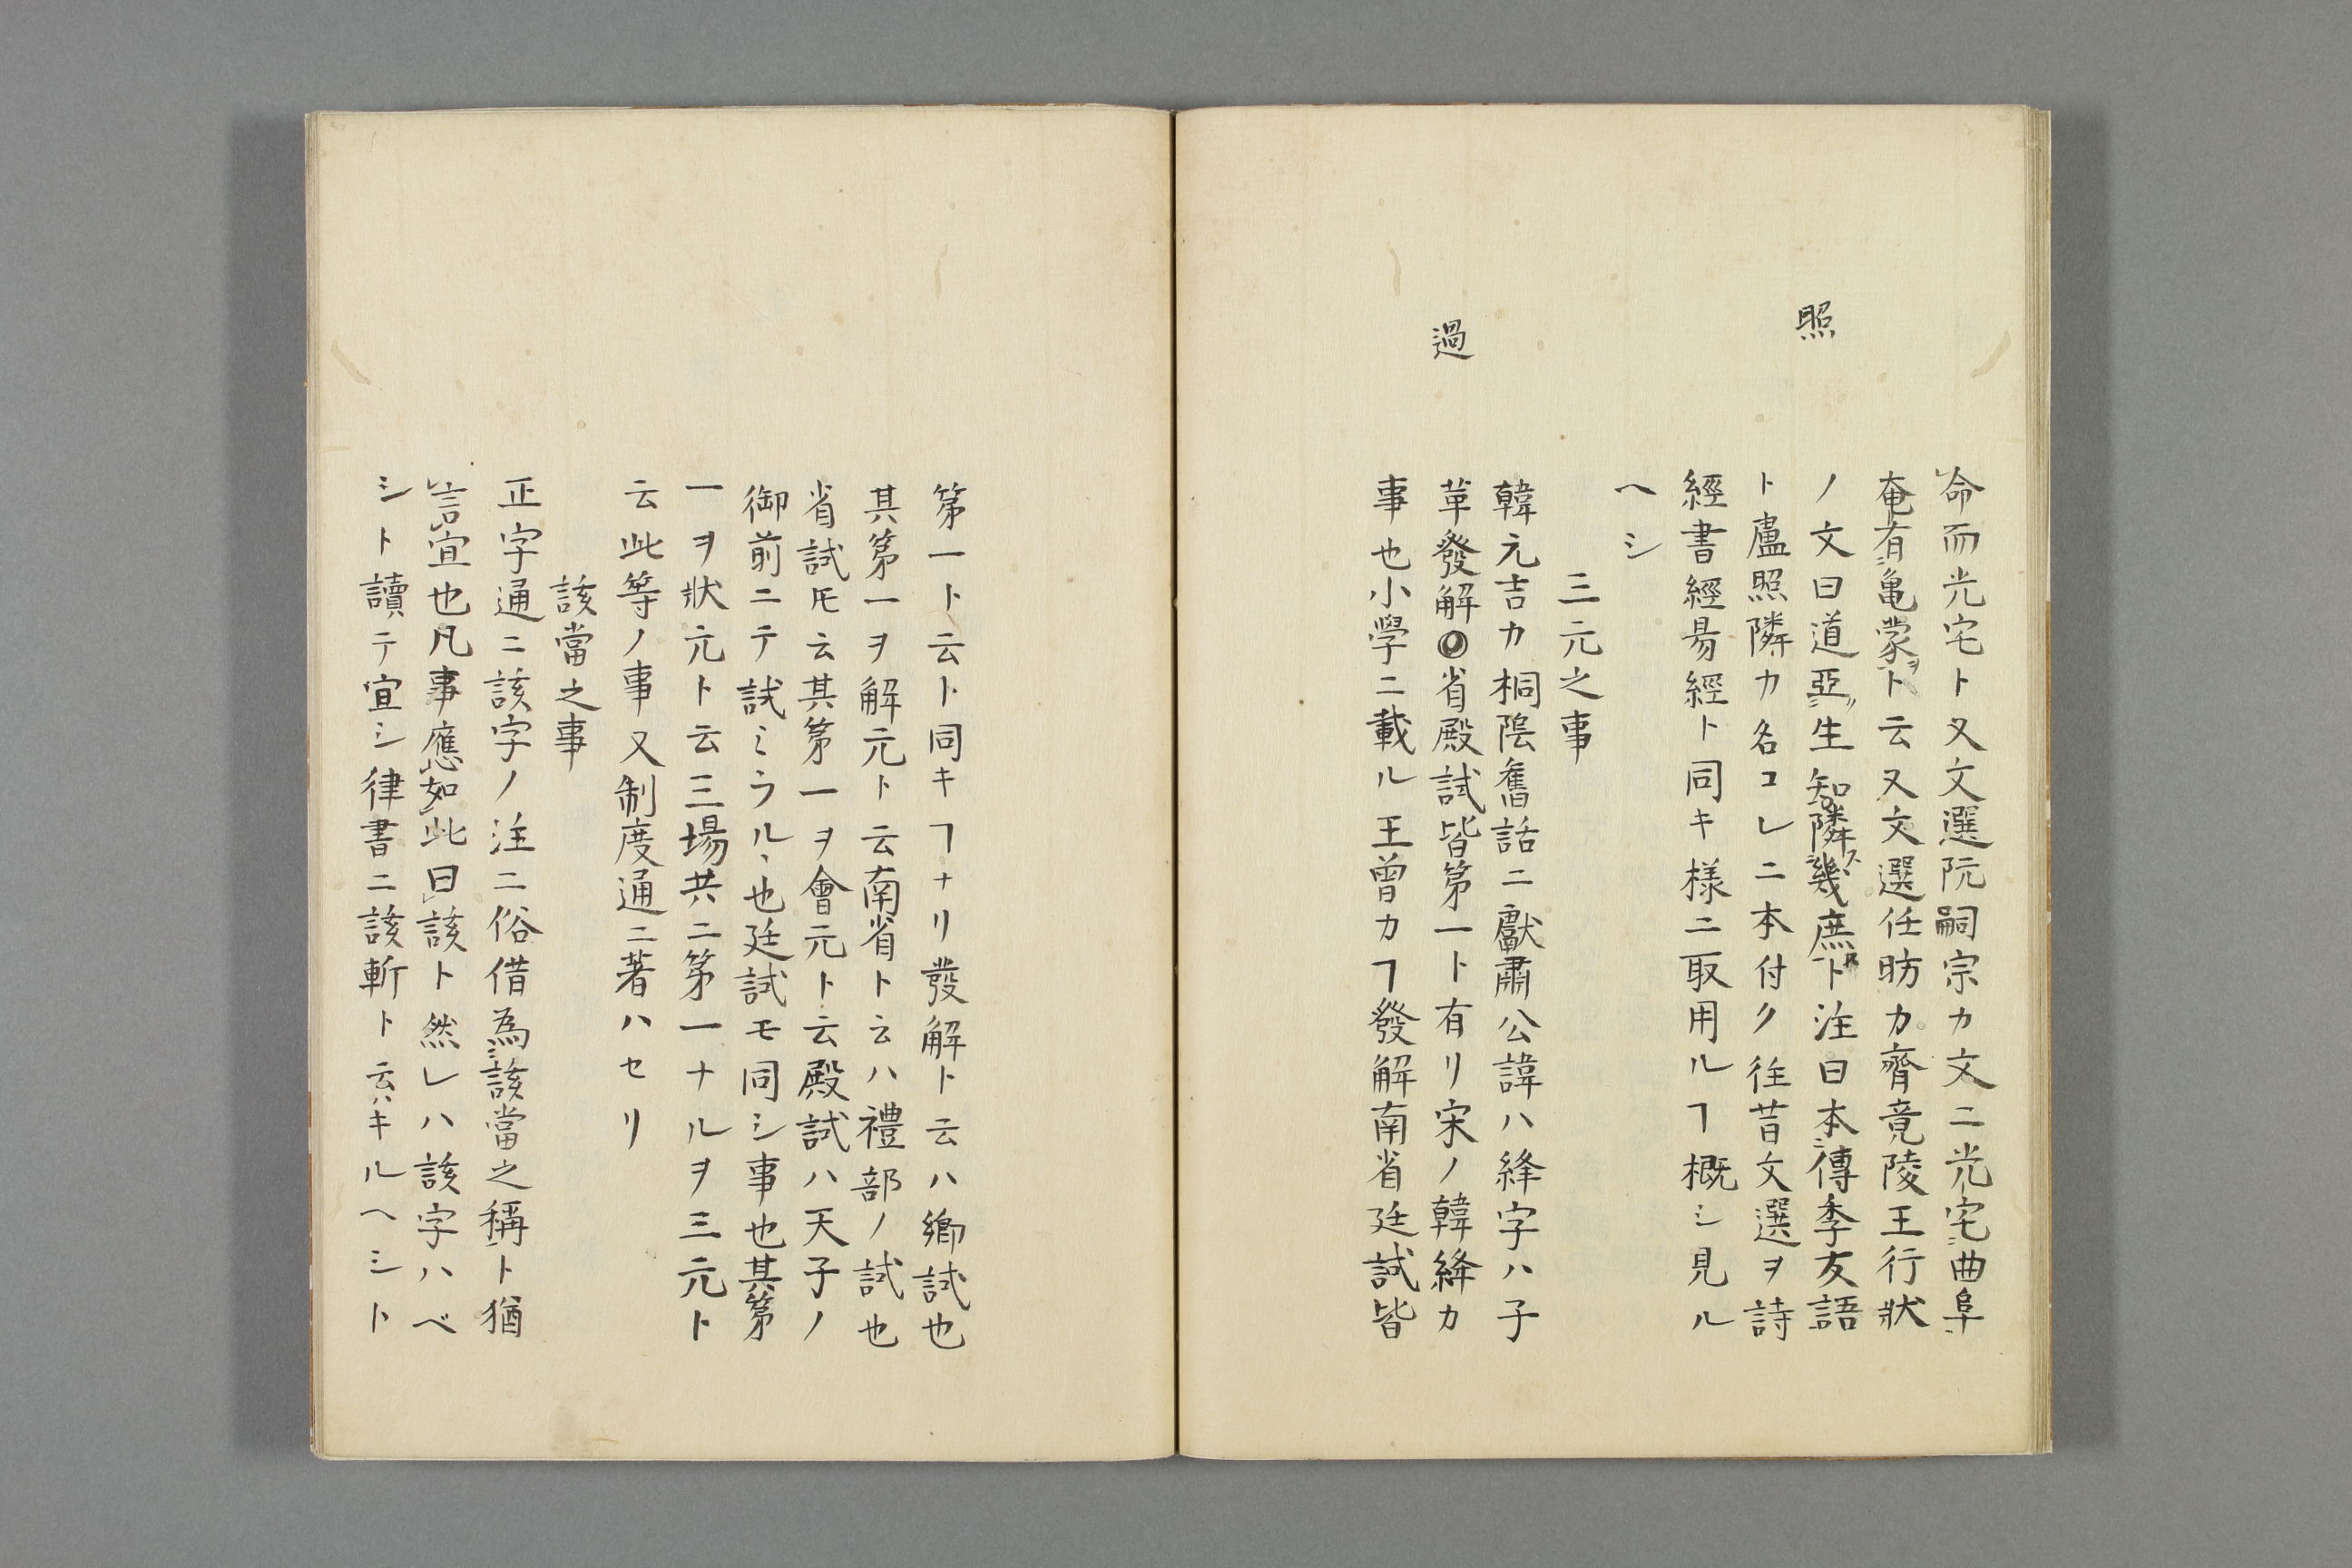 照
過
命而光宅ト又文選阮嗣宗カ文ニ光宅曲阜
奄有亀蒙ヲト云又文選任昉カ齊竟陵王行狀
ノ文曰道亞生知隣幾庶ト注曰本傳季友語
ト盧照隣カ名コレニ本付ク徃昔文選ヲ詩
經書經易經ト同キ様ニ取用ルヿ概シ見ル
ヘシ
三元之事
韓元吉カ桐陰舊話ニ獻肅公諱ハ絳字ハ子
華發解◎省殿試皆第一ト有リ宋ノ韓絳カ
事也小學ニ載ル王曽カヿ發解南省廷試皆
第一ト云ト同キヿナリ發解ト云ハ鄉試也
其第一ヲ解元ト云南省ト云ハ禮部ノ試也
省試𪜈云其第一ヲ會元ト云殿試ハ天子ノ
御前ニテ試ミラルヽ也廷試モ同シ事也其第
一ヲ狀元ト云三場共ニ第一ナルヲ三元ト
云此等ノ事又制度通ニ著ハセリ
該當之事
正字通ニ該字ノ注ニ俗借為該當之稱ト猶
言宜也凡事應如此曰該ト然レハ該字ハベ
シト讀テ宜シ律書ニ該斬ト云ハキルヘシト